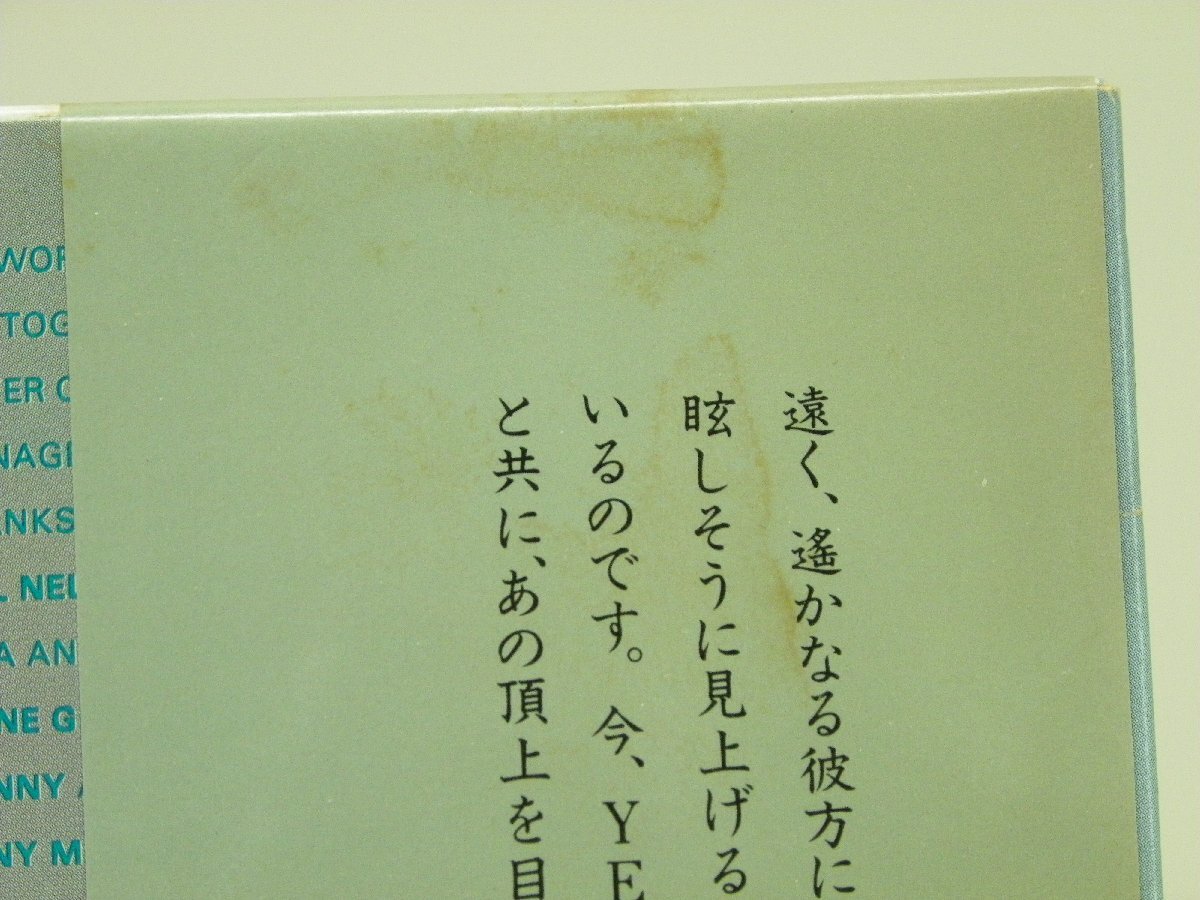 遠く、遙かなる彼方に
眩しそうに見上げる
いるのです。今、YE
と共に、あの頂上を目
WOR
TOG
ER C
NAGE
ANKS
L NEL
A AN
NE G
NNY A
NY M